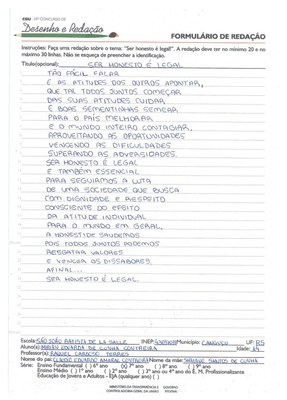 CGU 10º CONCURSO DE
Desenho e Redação
FORMULÁRIO DE REDAÇÃO
Instruções: Faça uma redação sobre o tema: "Ser honesto é legal". A redação deve ter no mínimo 20 e no
máximo 30 linhas. Não se esqueça de preencher a identificação.
Título(opcional): SER HONESTO É LEGAL
TÃO FÁCIL FALAR
E AS ATITUDES DOS OUTROS APONTAR,
QUE TAL TODOS JUNTOS COMEÇAR
DAS SUAS ATITUDES CUIDAR
E BOAS SEMENTINHAS SEMEAR
PARA O PAÍS MELHORAR
E O MUNDO INTEIRO CONTAGIAR.
APROVEITANDO AS OPORTUNIDADES
VENCENDO AS DIFICULDADES
SUPERANDO AS ADVERSIDADES.
SER HONESTO É LEGAL
E TAMBÉM ESSENCIAL
PARA SEGUIRMOS A LUTA
DE UMA SOCIEDADE QUE BUSCA
COM DIGNIDADE E RESPEITO
CONSCIENTE DO EFEITO
DA ATITUDE INDIVIDUAL
PARA O MUNDO EM GERAL,
A HONESTIDE SAUDEMOS
POIS TODOS JUNTOS PODEMOS
RESGATAR VALORES
E VENCER OS DISSABORES,
AFINAL...
SER HONESTO É LEGAL.
Escola: SÃO JOÃO BATISTA DE LA SALLE INEP: Município: CANGUÇU UF: RS
Aluno(a): EDUARDA DE CUNHA Idade: 14
Professor(a): RAQUEL CARDOSO TORRES
Nome do pai: CLAUDIO EDUARDO Nome da mãe: SANTOS DE CUNHA
Série: Ensino Fundamental ( ) 6º ano ( ) 7º ano ( ) 8º ano ( ) 9º ano
Ensino Médio ( ) 1º ano ( ) 2º ano ( ) 3º ano ( ) 4º ano do E. M. Profissionalizante
Educação de Jovens e Adultos - EJA (qualquer ano) ( )
MINISTÉRIO DA TRANSPARÊNCIA E GOVERNO
CONTROLADORIA-GERAL DA UNIÃO FEDERAL